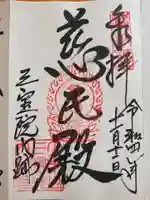 奉拝
令和四年
十一月十二日
慈氏殿
三宝院門跡